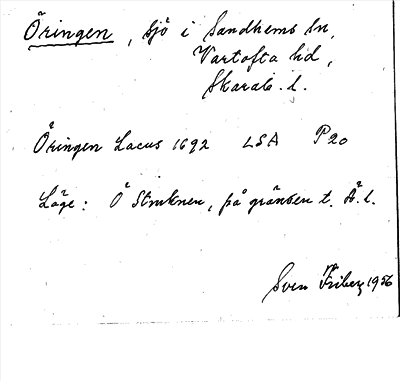 Öringen, sjö i Sandhems sn,
Vartofta hd,
Skarab. l.
Öringen Lacus 1692 LSA P20
Läge: Ö Stråknen, på gränsen t. Ä. l.
Sven Friberg 1956